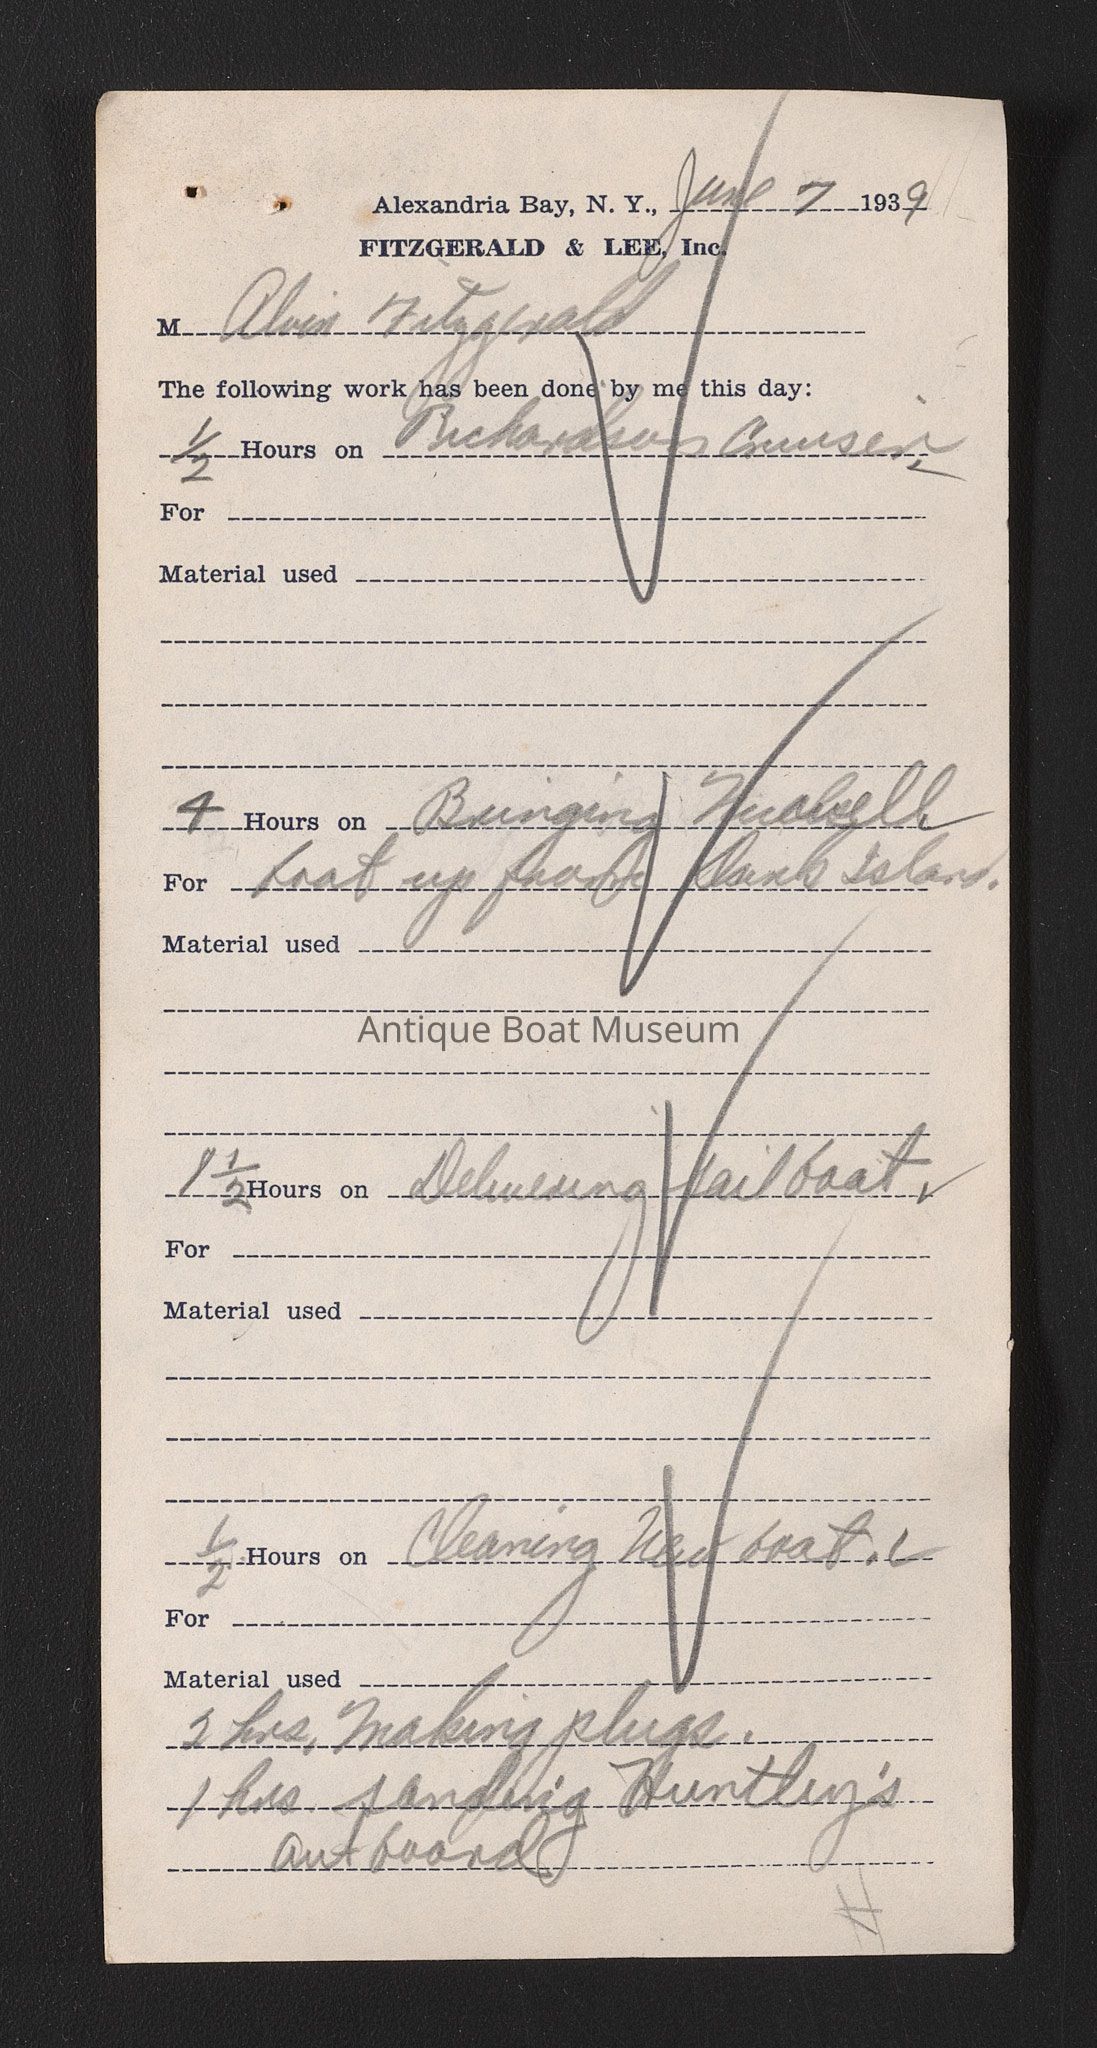 Alexandria Bay, N. Y., June 7 1939
FITZGERALD & LEE, Inc.
M Alvin Fitzgerald
The following work has been done by me this day:
1/2 Hours on Richardson Cruiser.
For
Material used
4 Hours on Bringing
For boat up from Dark Island.
Material used
Antique Boat Museum
1 1/2 Hours on Delivering sail boat.
For
Material used
1/2 Hours on Cleaning New boat.
For
Material used
2 hrs. Making plugs.
1 hrs. sanding Huntley's
out board